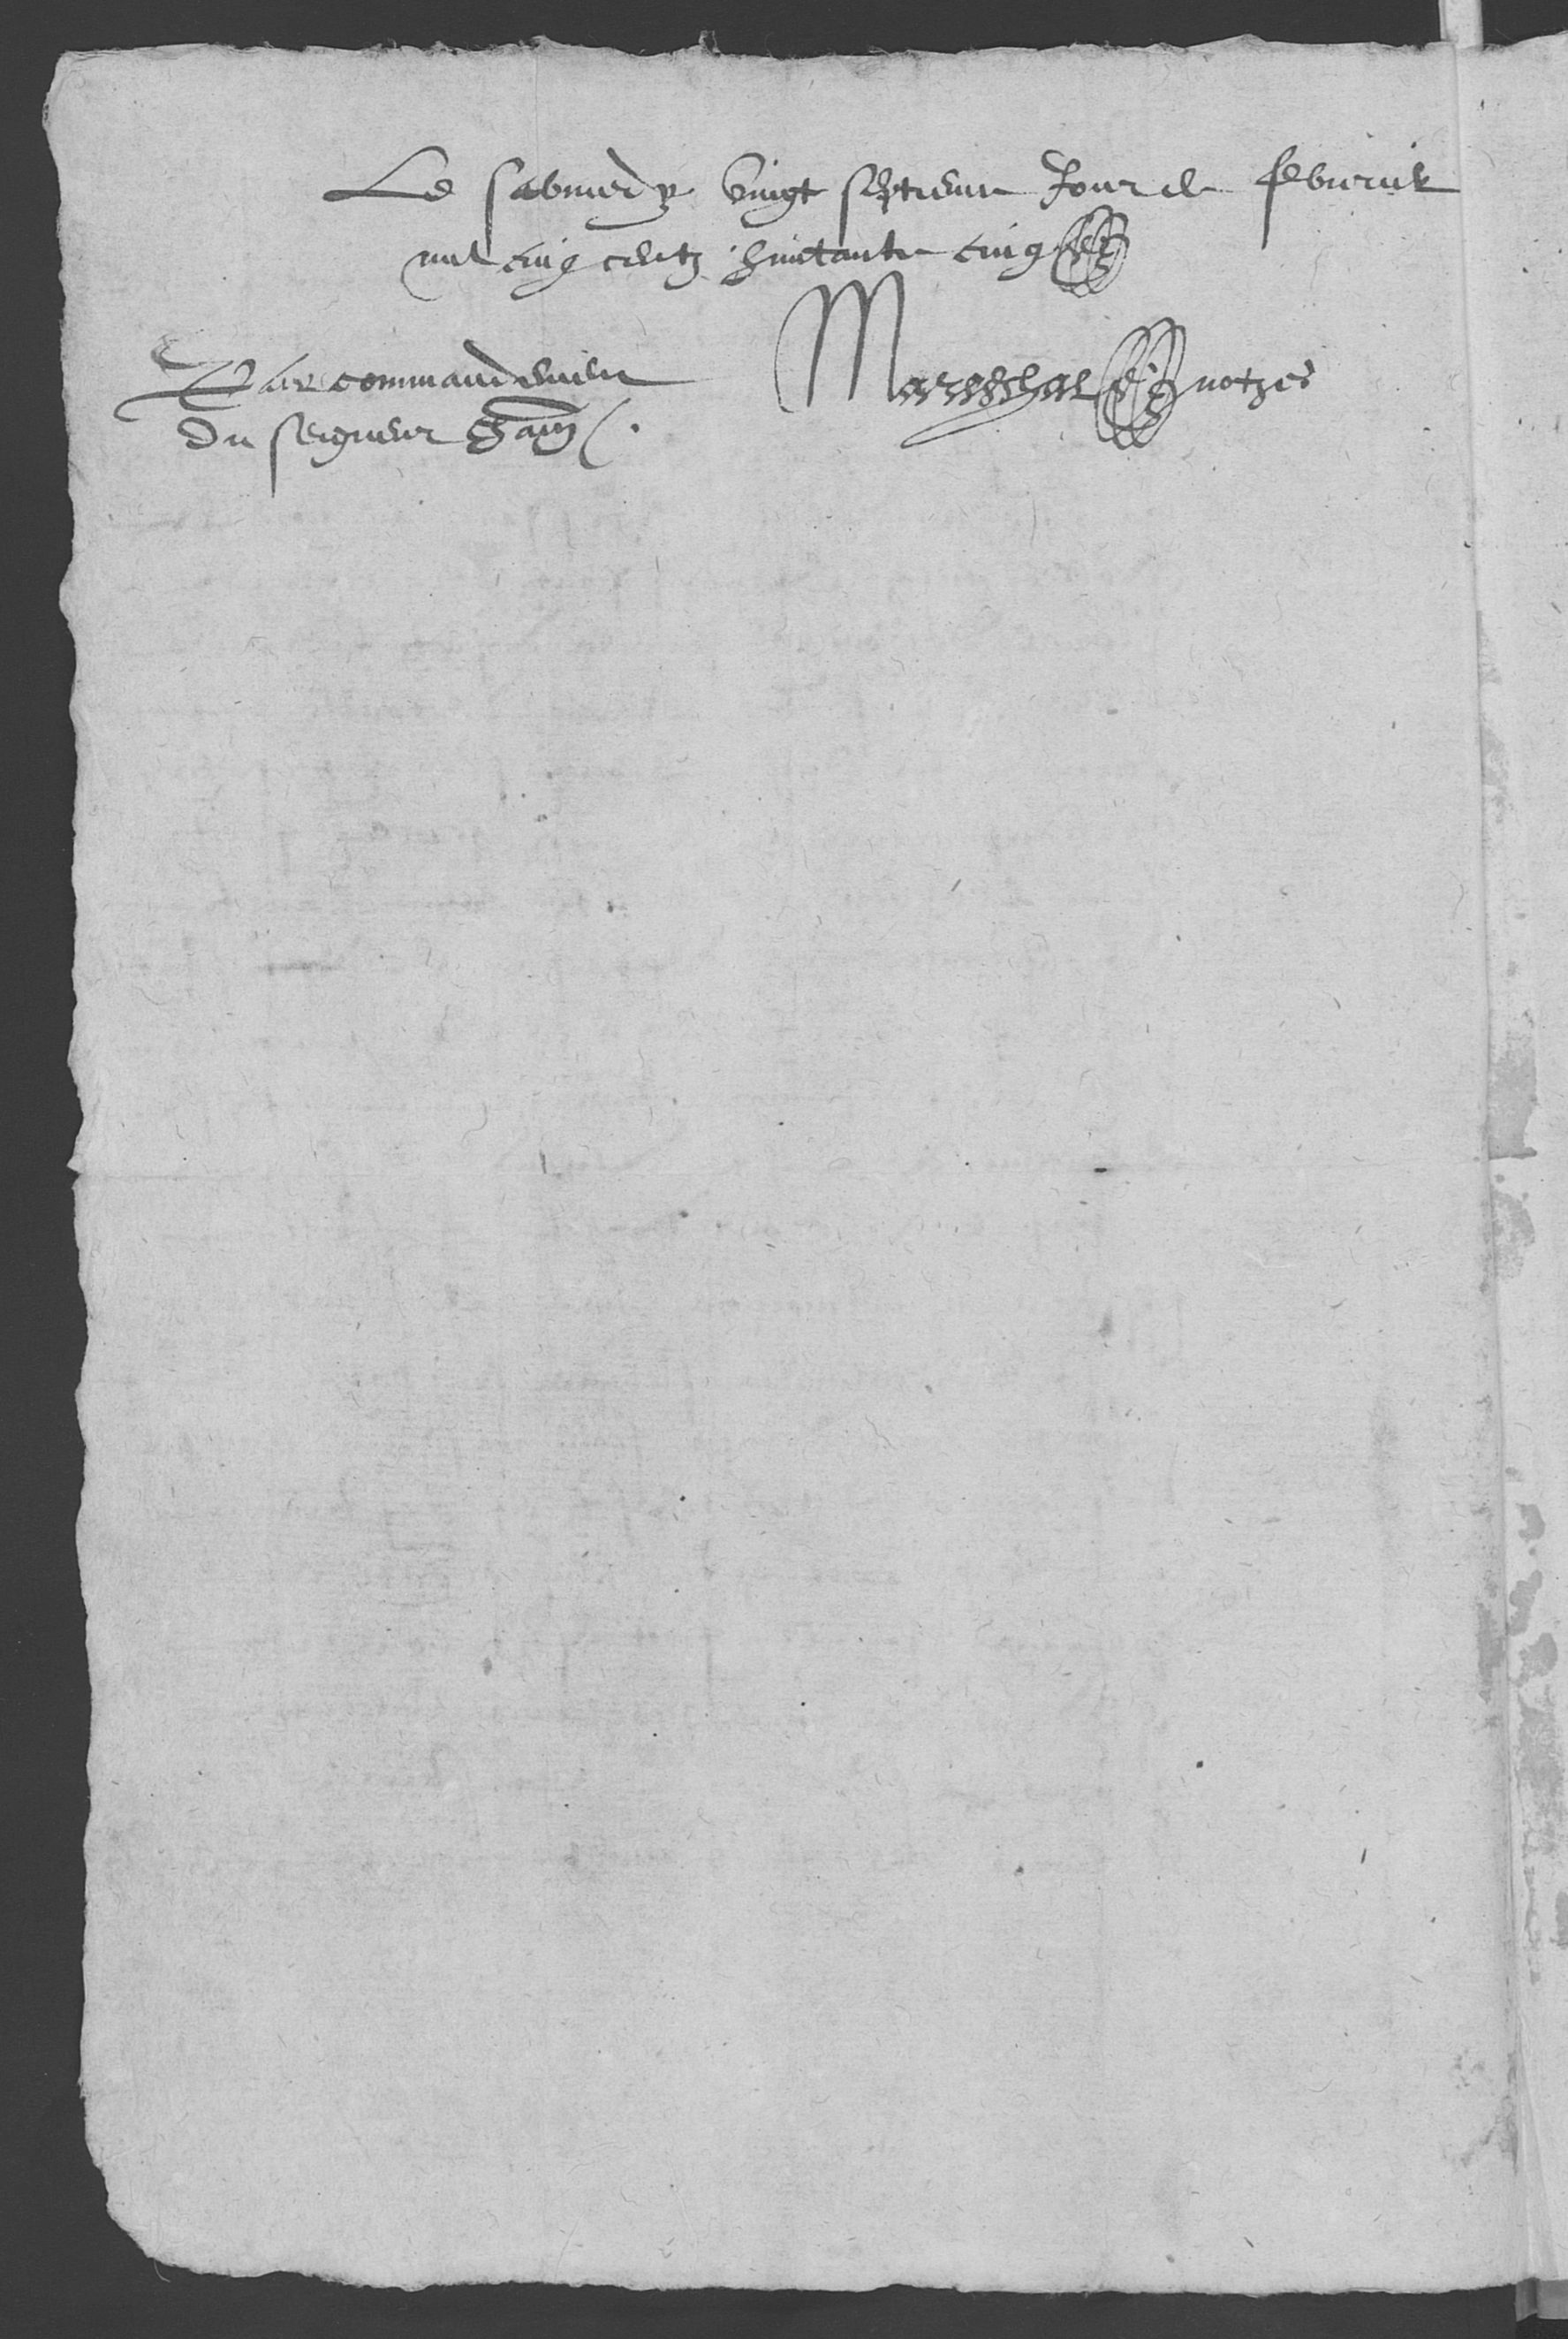 Le sabmedy vingt septieme Jour de febvrier
mil cinq centz huictante cinq
Par commandement
du seigneur
Mareschal notre